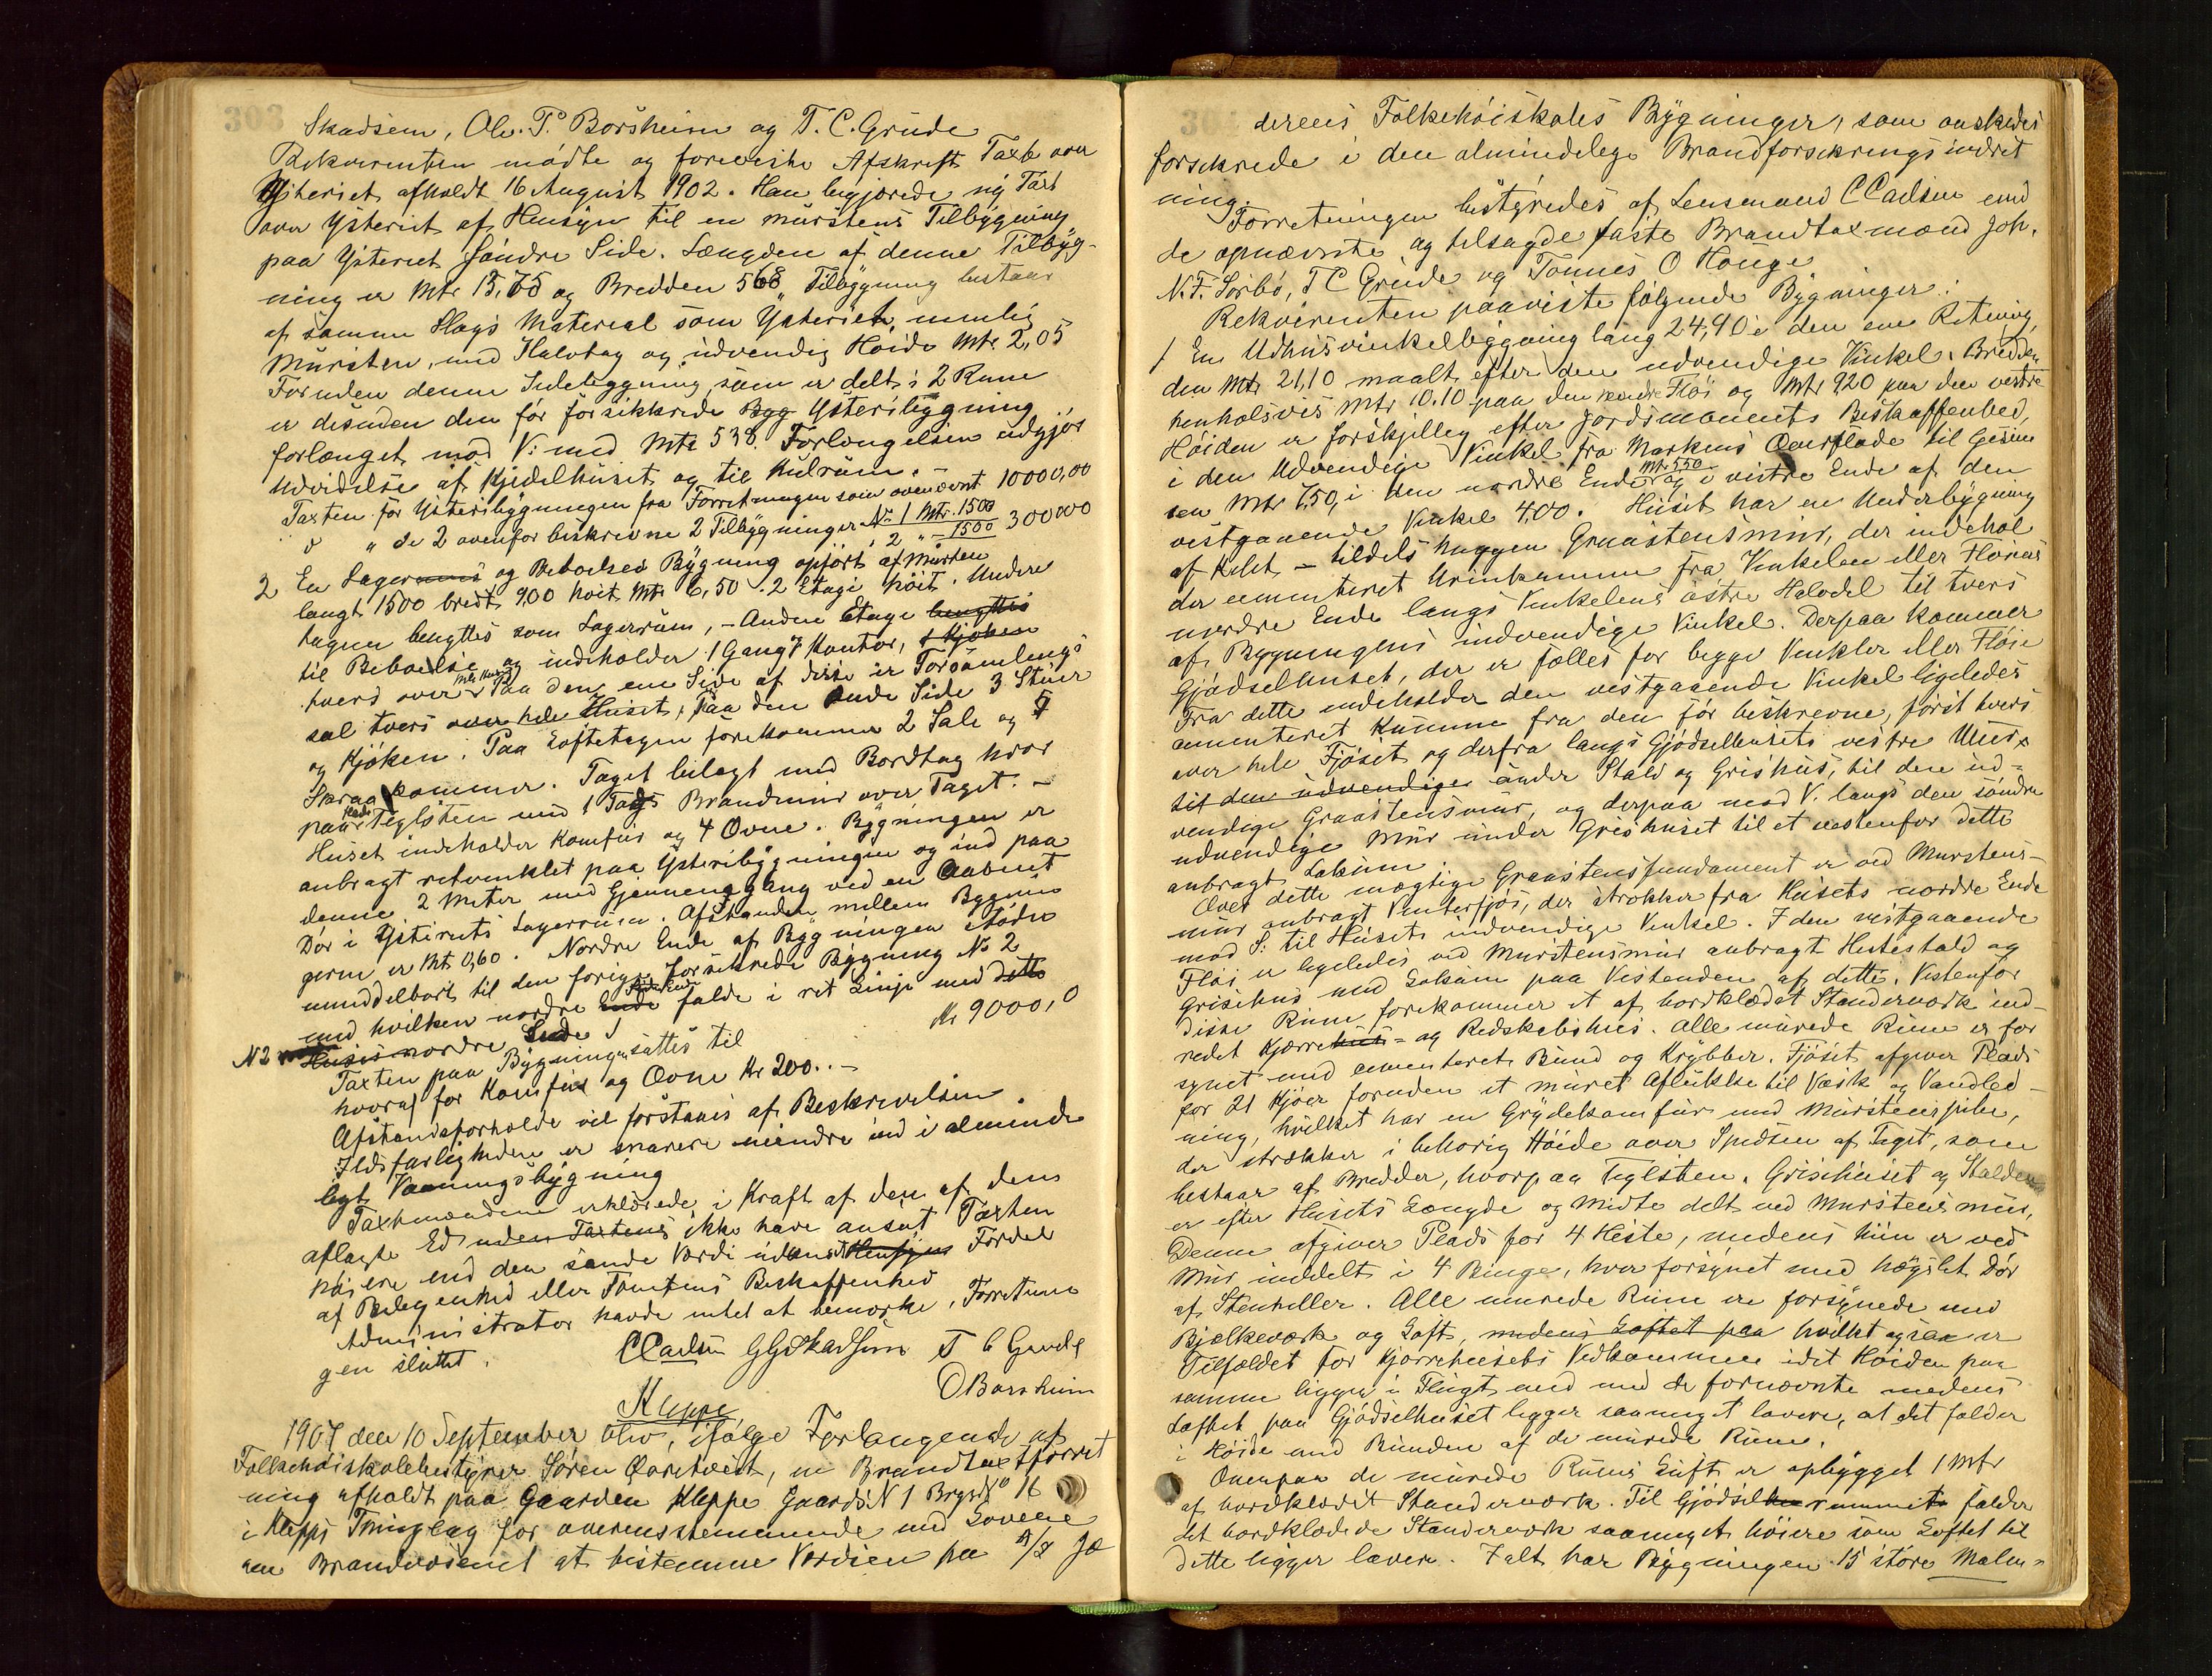 303
Skadsem, Ole. T. Borsheim og T. C. Grude
Rekvirenten mødte og foreviste Afskrift Taxt over
Ysteriet afholdt 16 August 1902. Han begjærede ny Taxt
over Ysteriet af Hensyn til en murstens Tilbygning
paa Ysteriet søndre Side. Længden af denne Tilbyg-
ning er Mtr 13,75 og Bredden 568 Tilbygning bestaar
af samme Slags Material som Ysteriet, nemlig
Mursten, med Halvtag og udvendig Høide Mtr 2,05
Foruden denne Sidebygning som er delt i 2 Rum
er desuden den før forsikkrede Byg Ysteribygning
forlænget mod V: med Mtr 538. Forlængelsen udgjør
Udvidelse af Kjedelhuset og til Kulrum. -
Taxten for Ysteribygningen fra Forretningen som ovennævnt 10000,00
d " de 2 ovenfor beskrevne 2 Tilbygninger No 1 Mtr. 1500
" 2 " - 1500 300000
2 En Lagerrums og Beboelses Bygning opført af Mursten
langt 1500 bredt 9,00 høit Mtr 6,50. 2 Etage høit. Undere
tagen benyttes som Lagerrum, - Anden Etage benyttes
til Beboelse og indeholder 1 Gang 1 Kontor, 1 Kjøken
tvers over Paa den ene Side af disse er Forsamlings
sal tvers over hele Huset, Paa den ande Side 3 Stuer
og Kjøken. Paa Loftetagen forekommer 2 Sale og 5
Skraakammer. Taget belagt med Bordtag hvor
paa Teglsten med 1 Tags Brandmur over Taget. -
Huset indeholder Komfur og 4 Ovne. Bygningen er
anbragt retvinklet paa Ysteribygningen og ind paa
denne 2 Meter med Gjennemgang ved en Aabent
Dør i Ysteriets Lagerrum. Afstanden mellem Bygnin
gerne er Mt 0,60. Nordre Ende af Bygningen støder
umiddelbart til den forige forsikrede Bygning No 2
med hvilken nordre Ende falde i ret Linje med dette
N 2 Husis nordre Ende
Taxten paa Bygningen sattes til Kr 9000,0
hvoraf for Komfur og Ovne Kr 200..-
Afstandsforholde vil forstaaes af Beskrivelsen.
Ildsfarligheden er snarere mindre end i alminde
ligt Vaaningsbygning
Taxtmændene erklærede i Kraft af den af dem
aflagte Ed uden Taxtens ikke have ansat Taxten
høiere end den sande Værdi uden Hensyn Fordel
af Beliggenhed eller Tomtens Beskaffenhed
Administrator havde intet at bemærke, Forretnin
gen sluttet.
CCarlsen GGSkadsem T C Grude
O Borsheim
Kleppe
1907 den 10 September blev, ifølge Forlangende af
Folkehøiskolebestyrer Søren Qaretvedt, en Brandtaxtforret
ning afholdt paa Gaarden Kleppe Gaards N 1 Brugs No 16
i Klepps Thinglag for overensstemmende med Lovene
om Brandvæsenet at bestemme Værdien paa A/S Jæ
derens Folkehøiskoles Bygninger, som ønskedes
forsikrede i den almindelige Brandforsikringsindret
ning.
Forretningen bestyredes af Lensmand CCarlsen med
de opnævnte og tilsagde faste Brandtaxmænd Joh.
N. F. Sørbø, T C Grude og Tønnes O Hauge
Rekvirenten paaviste følgende Bygninger:
1 En Udhusvinkelbygning lang 24,90 i den ene Retning,
den Mtr 21,10 maalt efter den udvendige Vinkel. Bredden
henholsvis Mtr 10.10 paa den nordre Fløi og Mtr 920 paa den vestre
Høiden er forskjellig efter Jordsmonnets Beskaffenhed,
i den Udvendige Vinkel fra Markens Overflade til Gesim
sen Mtr 7,50, i den nordre Ende Mtr 550 og i vestre Ende af den
vestgaaende Vinkel 4,00. Huset har en Underbygning
af Kilt - tildels huggen Graastensmur, der indehol
der cementeret Urinkumme fra Vinkelen eller Fløiens
nordre Ende langs Vinkelens østre Halvdel til tvers
af Bygningens indvendige Vinkel. Derpaa kommer
Gjødselhuset, der er fælles for begge Vinkler eller Fløie
Fra dette indeholder den vestgaaende Vinkel ligeledes
cementeret Kumme fra den før beskrevne, først tvers
over hele Fjøset og derfra langs Gjødselhusets vestre Mur,
til den udvendige under Stald og Grishus, til den ud-
vendige Graastensmur, og derpaa mod V. langs den søndre
udvendige Mur under Grishuset til et vestenfor dette
anbragt Lokum.
Over dette mægtige Graastensfundament er ved Murstens-
mur anbragt Vinterfjøs, der strækker fra Husets nordre Ende
mod S: til Husets indvendige Vinkel. I den vestgaaende
Fløi er ligeledes ved Murstensmur anbragt Hestestald og
Grisehus med Lokum paa Vestenden af dette. Vestenfor
disse Rum forekommer et af bordklædet Standerværk ind
redet Kjærrehus- og Redskabshus. Alle murede Rum er for
synet med cementeret Bund og Krybber. Fjøset afgiver Plads
for 21 Kjøer foruden et muret Aflukke til Vask og Vandled-
ning, hvilket har en Grydekomfur med Murstenspibe,
der strækker i behørig Høide over Spidsen af Taget, som
bestaar af Bredder, hvorpaa Teglsten. Grisehuset og Stalden
er efter Husets Længde og Midte delt ved Murstens mur,
Denne afgiver Plads for 4 Heste, medens hin er ved
Mur inddelt i 4 Binge, hver forsynet med hægslet Dør
af Stenheller. Alle murede Rum ere forsynede med
Bjælkeværk og Loft, medens Loftet paa hvilket ogsaa er
Tilfældet for Kjærrehusets Vedkommen idet Høiden paa
samme ligger i Flugt med med de fornævnte medens
Loftet paa Gjødselhuset ligger saameget lavere, at det falder
i Høide med Bunden af de murede Rum.
Ovenpaa de murede Rums Luft er opbygget 1 Mtr
af bordklædet Standerværk. Til Gjødselrummet falder
det bordklædede Standerværk saameget høiere som Loftet til
dette ligger lavere. Ialt har Bygningen 15 store Malm-